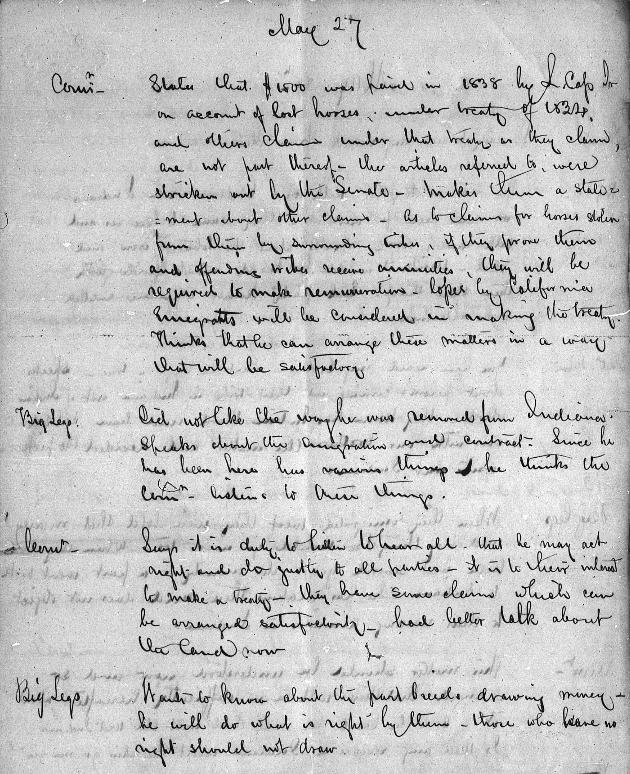 May 27
Comr - States that $1800 was paid in 1838 by
on account of lost horses, under treaty of 1834,
and others claim under that treaty as they claim,
are not part thereof - the articles referred to, were
stricken out by the Senate - Makes them a state=
=ment about other claims - As to claims for horses stolen
from them by surrounding tribes, if they prove them
and offending tribes receive annuities, they will be
required to make remuneration - losses by California
Emegrants will be considered in making the treaty.
Thinks that he can arrange these matters in a way
that will be satisfactory
Big Legs. Did not like the way he was removed from Indiana.
Speaks about the emigration and contract - Since he
has been here has various things he thinks the
Comr - listens to these things.
Comr - Says it is duty to listen to hear all that he may act
right and do justly to all parties - it is to their interest
to make a treaty - they have some claims which can
be arranged satisfactorily - had better talk about
the land now
Big Legs Wants to know about the part bloods drawing money -
he will do what is right by them - those who have no
right should not draw